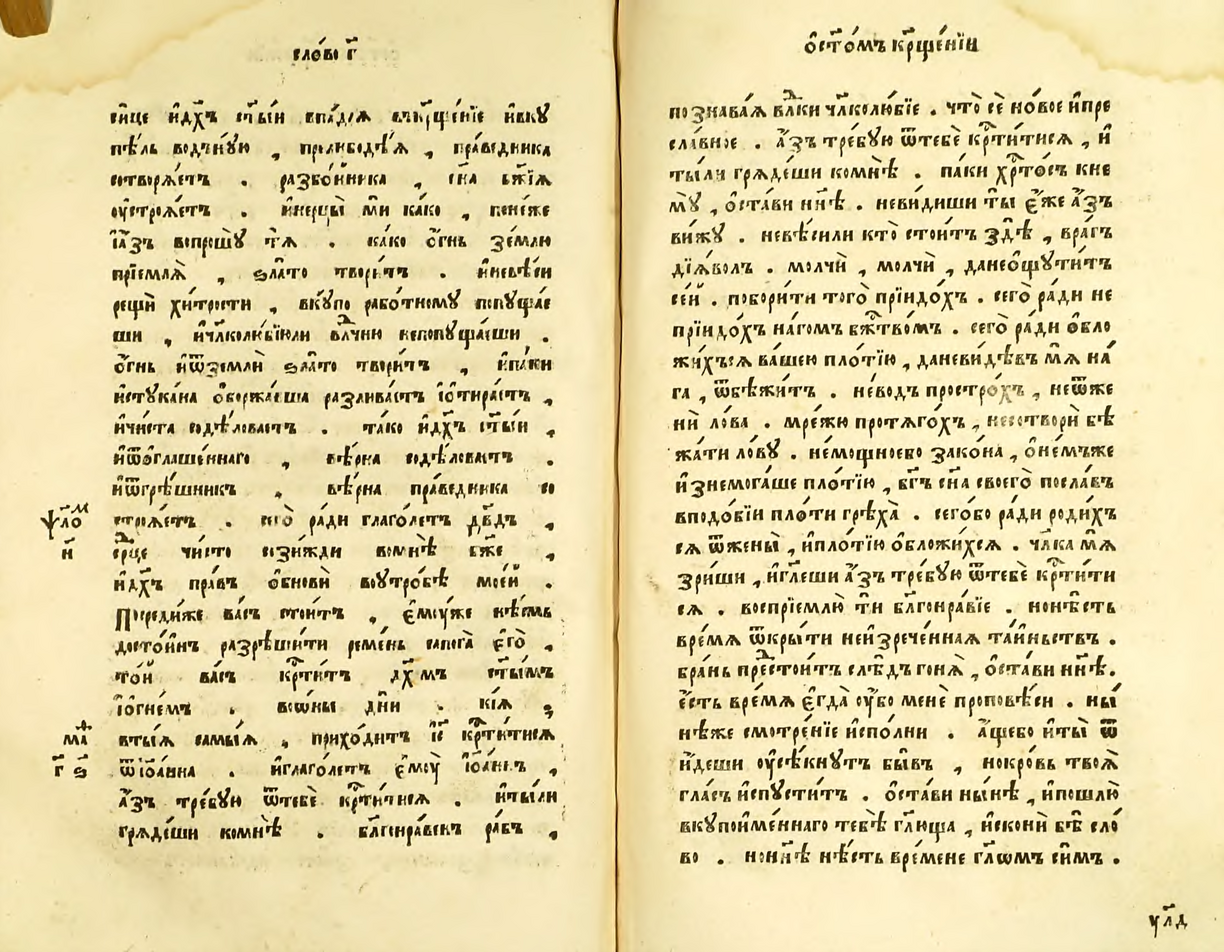 сло́во г҃
си́це и҆дх҃ъ ст҃ы́й впа́дꙗ вкр҃ще́нїе и҆вкꙋ
пѣ́ль во́днꙋю , прелюбодѣ́ѧ , пра́ведника
сотворѧ́етъ . разбо́йника , сн҃а бж҃їѧ
ᲂу҆строѧ́етъ . и҆нерцы̀ ми ка́ко , поне́же
і҆а҆́зъ вопрошꙋ̀ тѧ̀ . ка́ко ѻ҆́гнь зе́млю
прїе́млѧ , ѕла́то твори́тъ . и҆невѣ́си
рещѝ хи́трости , вкꙋ́пѣ рабо́тномꙋ попꙋща́е
ши , и҆чл҃колю́бїюли влⷣчню непопꙋща́еши .
ѻ҆́гнь и҆ѿземлѝ ѕла́то твори́тъ , и҆па́ки
и҆стꙋка́на ѻ҆боржа́вша разлива́етъ і҆ѻ҆тира́етъ ,
и҆чи́ста содѣ́ловаетъ . та́ко и҆дх҃ъ ст҃ы́й ,
и҆ѿѡ҆глаше́ннаго , вѣ́рна содѣ́ловаетъ .
и҆ѿгрѣ́шникъ , вѣ́рна пра́ведника со
строѧ́етъ . сего̀ ра́ди глаго́летъ дв҃дъ ,
ѱало́м
н҃
срⷣце чи́сто сози́жди вомнѣ̀ бж҃е ,
и҆дх҃ъ пра́въ ѻ҆бновѝ воутро́бѣ мое́й .
Посреди́же ва́съ стои́тъ , є҆мꙋ́же нѣ́смь
досто́инъ разрѣши́ти реме́нь сапога̀ є҆го̀ ,
то́й ва́съ крⷭ҇ти́тъ дх҃мъ ст҃ы́мъ
і҆ѻ҆гне́мъ . воѡ҆ны дни̑ . кі́ѧ ,
втыѧ̀ са́мыѧ , прихо́дитъ і҆с҃ крⷭ҇ти́тисѧ
маⷴ
г҃ ѕ҃
ѿі҆ѡ҆а́нна . и҆глаго́летъ є҆мꙋ̀ і҆ѡ҆а́ннъ ,
а҆́зъ тре́бꙋю ѿтебѐ крⷭ҇ти́тисѧ . и҆ты́ли
грѧде́ши комнѣ̀ . блг҃онра́венъ ра́бъ ,
ѻ҆ст҃о́мъ крⷳ҇ще́нїи
познава́ѧ влⷣки чл҃колю́бїе . что̀ сѐ но́вое и҆пре
сла́вное . а҆́зъ тре́бꙋю ѿтебѐ крⷭ҇ти́тисѧ , и҆
ты́ли грѧде́ши комнѣ̀ . па́ки хрⷭ҇то́съ кне
мꙋ̀ , ѻ҆ста́ви нн҃ѣ . неви́диши ты̀ є҆́же а҆́зъ
ви́жꙋ . невѣ́сили кто̀ стои́тъ здѣ̀ , вра́гъ
дїѧ́волъ . молчѝ , молчѝ , данеѡ҆щꙋти́тъ
се́й . побори́ти того̀ прїидо́хъ . сего̀ ра́ди не
прїидо́хъ наго́мъ бжⷭ҇тво́мъ . сего̀ ра́ди ѻ҆бло
жи́хъсѧ ва́шею пло́тїю , даневи́дѣвъ мѧ̀ на́
га , ѿбѣжи́тъ . не́водъ простро́хъ , неѿже
нѝ ло́ва . мре́жю протѧго́хъ , несотворѝ бѣ
жа́ти ло́вꙋ . немо́щноебо зако́на , ѻ҆не́мъже
и҆знемога́ше пло́тїю , бг҃ъ сн҃а своего̀ посла́въ
вподо́бїи пло́ти грѣха̀ . сегѡ́бо ра́ди роди́хъ
сѧ ѿжены̀ , и҆пло́тїю ѻ҆бложи́хсѧ . чл҃ка мѧ̀
зри́ши , и҆гл҃еши а҆́зъ тре́бꙋю ѿтебѐ крⷭ҇ти́ти
сѧ . воспрїе́млю тѝ блг҃онра́вїе . нонѣ́сть
вре́мѧ ѿкры́ти неи҆зрече́ннаѧ та́иньствъ .
бра́нь предстои́тъ слѣ́дъ гонѧ̀ , ѻ҆ста́ви нн҃ѣ .
є҆́сть вре́мѧ є҆гда̀ ᲂу҆́бо менѐ проповѣ́си . ны́
нѣже смотре́нїе и҆спо́лни . а҆́щебо и҆ты̀ ѿ
и҆де́ши ᲂу҆сѣ́кнꙋтъ бы́въ , нокро́вь твоѧ̀
гла́съ и҆спꙋ́ститъ . ѻ҆ста́ви ны́нѣ , и҆пошлю̀
вкꙋпои҆ме́ннаго тебѣ̀ гл҃юща , и҆сконѝ бѣ̀ сло́
во . нонн҃ѣ нѣ́сть вре́мене гл҃ѡмъ си́мъ .
ул҃д